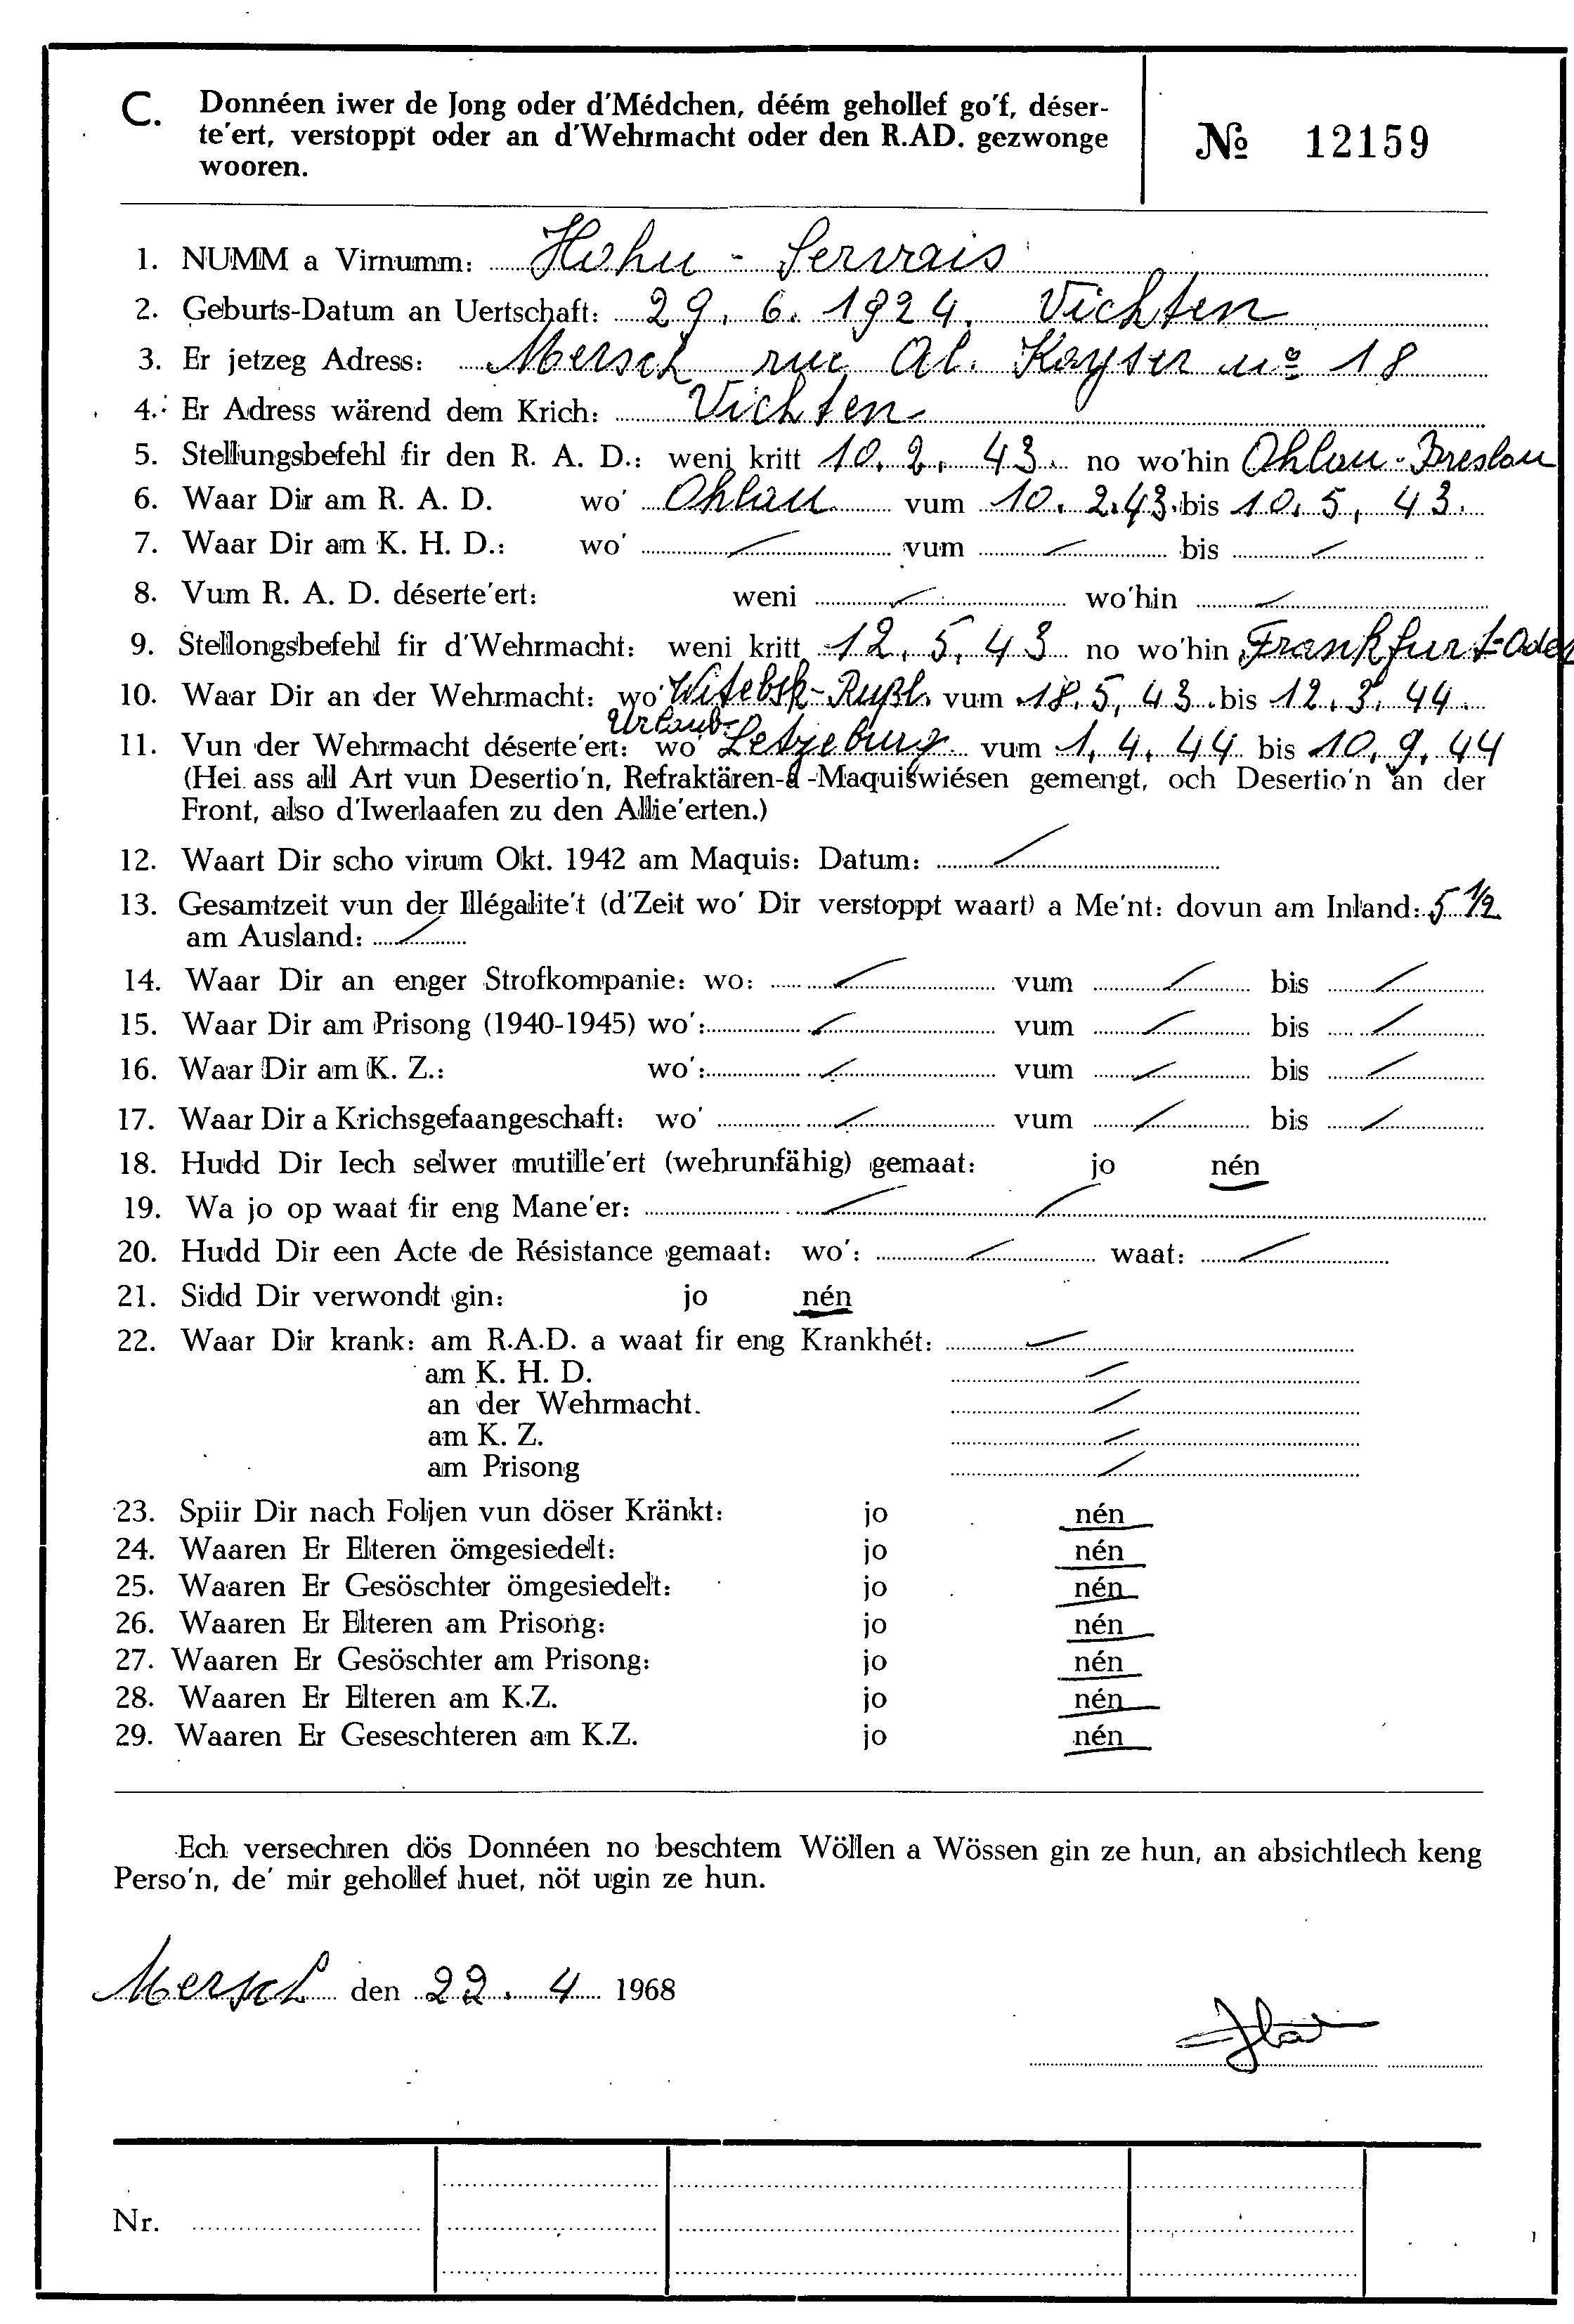 C. Donnéen iwer de Jong oder d'Médchen, déém gehollef go'f, déser-
te'ert, verstoppt oder an d'Wehrmacht oder den R.AD. gezwonge
wooren.
№ 12159
1. NUMM a Virnumm: Hohn - Servais
2. Geburts-Datum an Uertschaft: 29. 6. 1924. Vichten
3. Er jetzeg Adress: Mersch rue Al. Kayser nº 18
4. Er Adress wärend dem Krich: Vichten
5. Stellungsbefehl fir den R. A. D.: weni kritt 10. 2. 43. no wo'hin Ohlau-Breslau
6. Waar Dir am R. A. D. wo' Ohlau vum 10. 2. 43. bis 10. 5. 43.
7. Waar Dir am K. H. D.: wo' / vum / bis /
8. Vum R. A. D. déserte'ert: weni / wo'hin /
9. Stellongsbefehl fir d'Wehrmacht: weni kritt 12. 5. 43 no wo'hin Frankfurt-Oder
10. Waar Dir an der Wehrmacht: wo' Witebsk-Rußl. vum 18. 5. 43. bis 12. 3. 44.
11. Vun der Wehrmacht déserte'ert: wo' Urlaub-Letzeburg vum 1. 4. 44 bis 10. 9. 44
(Hei ass all Art vun Desertio'n, Refraktären-a -Maquiswiésen gemengt, och Desertio'n an der
Front, also d'Iwerlaafen zu den Allie'erten.)
12. Waart Dir scho virum Okt. 1942 am Maquis: Datum: /
13. Gesamtzeit vun der Illégalite't (d'Zeit wo' Dir verstoppt waart) a Me'nt: dovun am Inland: 5 1/2
am Ausland: /
14. Waar Dir an enger Strofkompanie: wo: / vum / bis /
15. Waar Dir am Prisong (1940-1945) wo': / vum / bis /
16. Waar Dir am K. Z.: wo': / vum / bis /
17. Waar Dir a Krichsgefaangeschaft: wo' / vum / bis /
18. Hudd Dir Iech selwer mutille'ert (wehrunfähig) gemaat: jo nén
19. Wa jo op waat fir eng Mane'er: / /
20. Hudd Dir een Acte de Résistance gemaat: wo': / waat: /
21. Sidd Dir verwondt gin: jo nén
22. Waar Dir krank: am R.A.D. a waat fir eng Krankhét: /
am K. H. D. /
an der Wehrmacht. /
am K. Z. /
am Prisong /
23. Spiir Dir nach Foljen vun döser Kränkt: jo nén
24. Waaren Er Elteren ömgesiedelt: jo nén
25. Waaren Er Gesöschter ömgesiedelt: jo nén
26. Waaren Er Elteren am Prisong: jo nén
27. Waaren Er Gesöschter am Prisong: jo nén
28. Waaren Er Elteren am K.Z. jo nén
29. Waaren Er Geseschteren am K.Z. jo nén
Ech versechren dös Donnéen no beschtem Wöllen a Wössen gin ze hun, an absichtlech keng
Perso'n, de' mir gehollef huet, nöt ugin ze hun.
Mersch den 22. 4 1968
Nr.